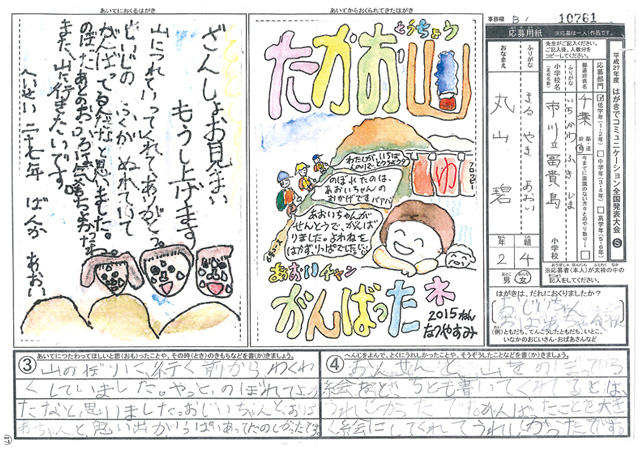 あいてにおくるはがき
ざんしょお見まい
もうし上げます
山につれていってくれてありがとう。
じいじの
がんばってるなと思いました。
また、山に行きたいです。
へいせい二十七年 ばんか あおい
あいてからおくられてきたはがき
とうちょう
たかお山
のぼれたのは、
あおいちゃんの
おかげです
ゆ
あおいちゃんが
せんとうで、がんば
りました。よわねを
はかず、りっぱでした。
あおいチャン
がんばったネ
2015ねん
なつやすみ
事務局 B
10761
応募用紙
※応募は一人1作品です。
先生がご記入ください。
ご記入後、人数分を
コピーしてください。
平成27年度
はがきでコミュニケーション全国発表大会
応募部門
低学年(1・2年)
中学年(3・4年)
高学年(5・6年)
都道府県名
千葉
ふりがな
いちかわ ふき しま
小学校名
市川立冨貴島
小学校
ふりがな
まる やま あおい
おなまえ
丸山 碧
2年
4組
男
女
※応募者(本人)が太枠の中の
記入をしてください。
はがきは、だれにおくりましたか?
(例)ともだち、てんこうしたともだち、いとこ、
いなかのおじいさん・おばあさんなど
③ あいてにつたわってほしいと思(おも)ったことや、その時(とき)のきもちなどを書(か)きましょう。
山のぼりに行く前からわくわ
くしていました。やっと、のぼれてよかっ
たなと思いました。おじいちゃんと、おば
あちゃんと、思い出がいっぱいあってたのしかったです。
④ へんじをよんで、とくにうれしかったことや、そうぞうしたことなどを書(か)きましょう。
おんせんと、山をのぼっている
絵をどっちとも書いてくれるとは、
うれしかったです。がんばったことを大き
く絵にしてくれてうれしかったです。